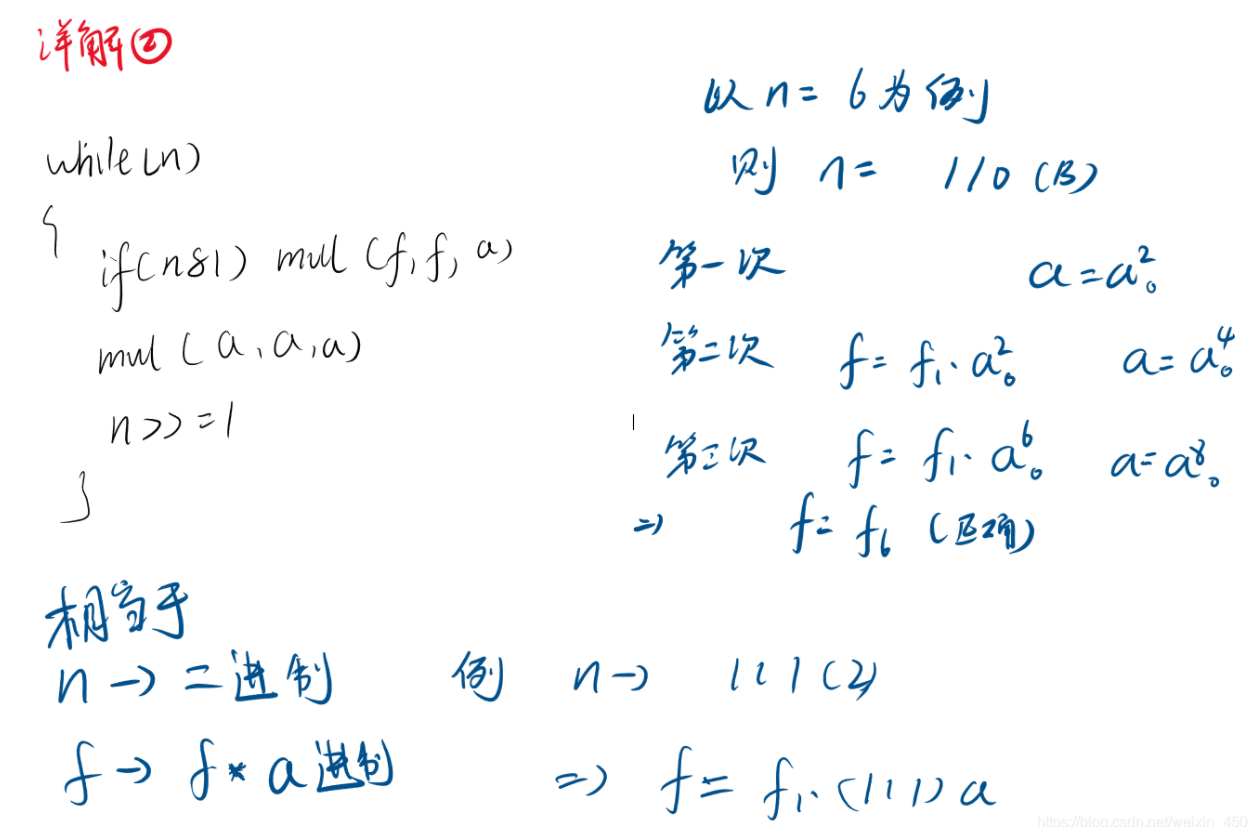 详解②
while(n)
{
if(n&1) mul(f, f, a)
mul(a, a, a)
n>>=1
}
以n=6为例
则 n= 110(B)
第一次 a=a₀²
第二次 f=f₁·a₀² a=a₀⁴
第三次 f=f₁·a₀⁶ a=a₀⁸
=> f=f₆(正确)
相当于
n→二进制 例 n→ 111(2)
f→f*a进制 => f=f₁·(111)a
https://blog.csdn.net/weixin_450